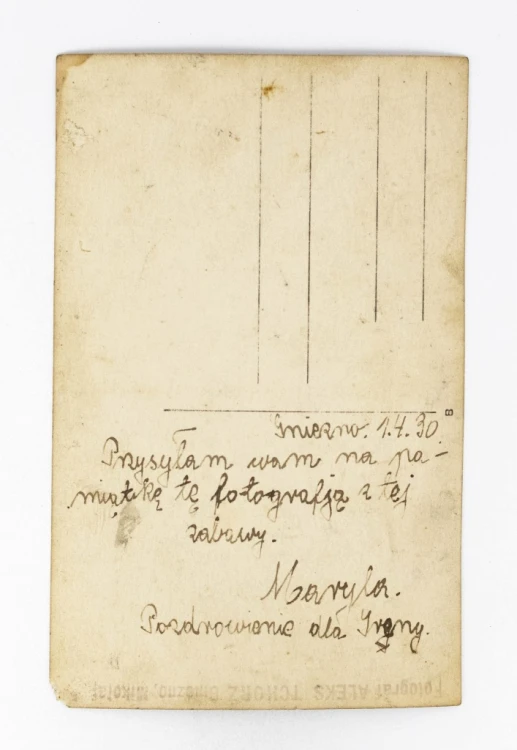 Gniezno. 1.4.30.
Przysyłam wam na pa-
miątkę tę fotografją z tej
zabawy.
Maryla.
Pozdrowienie dla Ireny.
8
Fotograf ALEKS TCHORZ Gniezno, Mikołaj